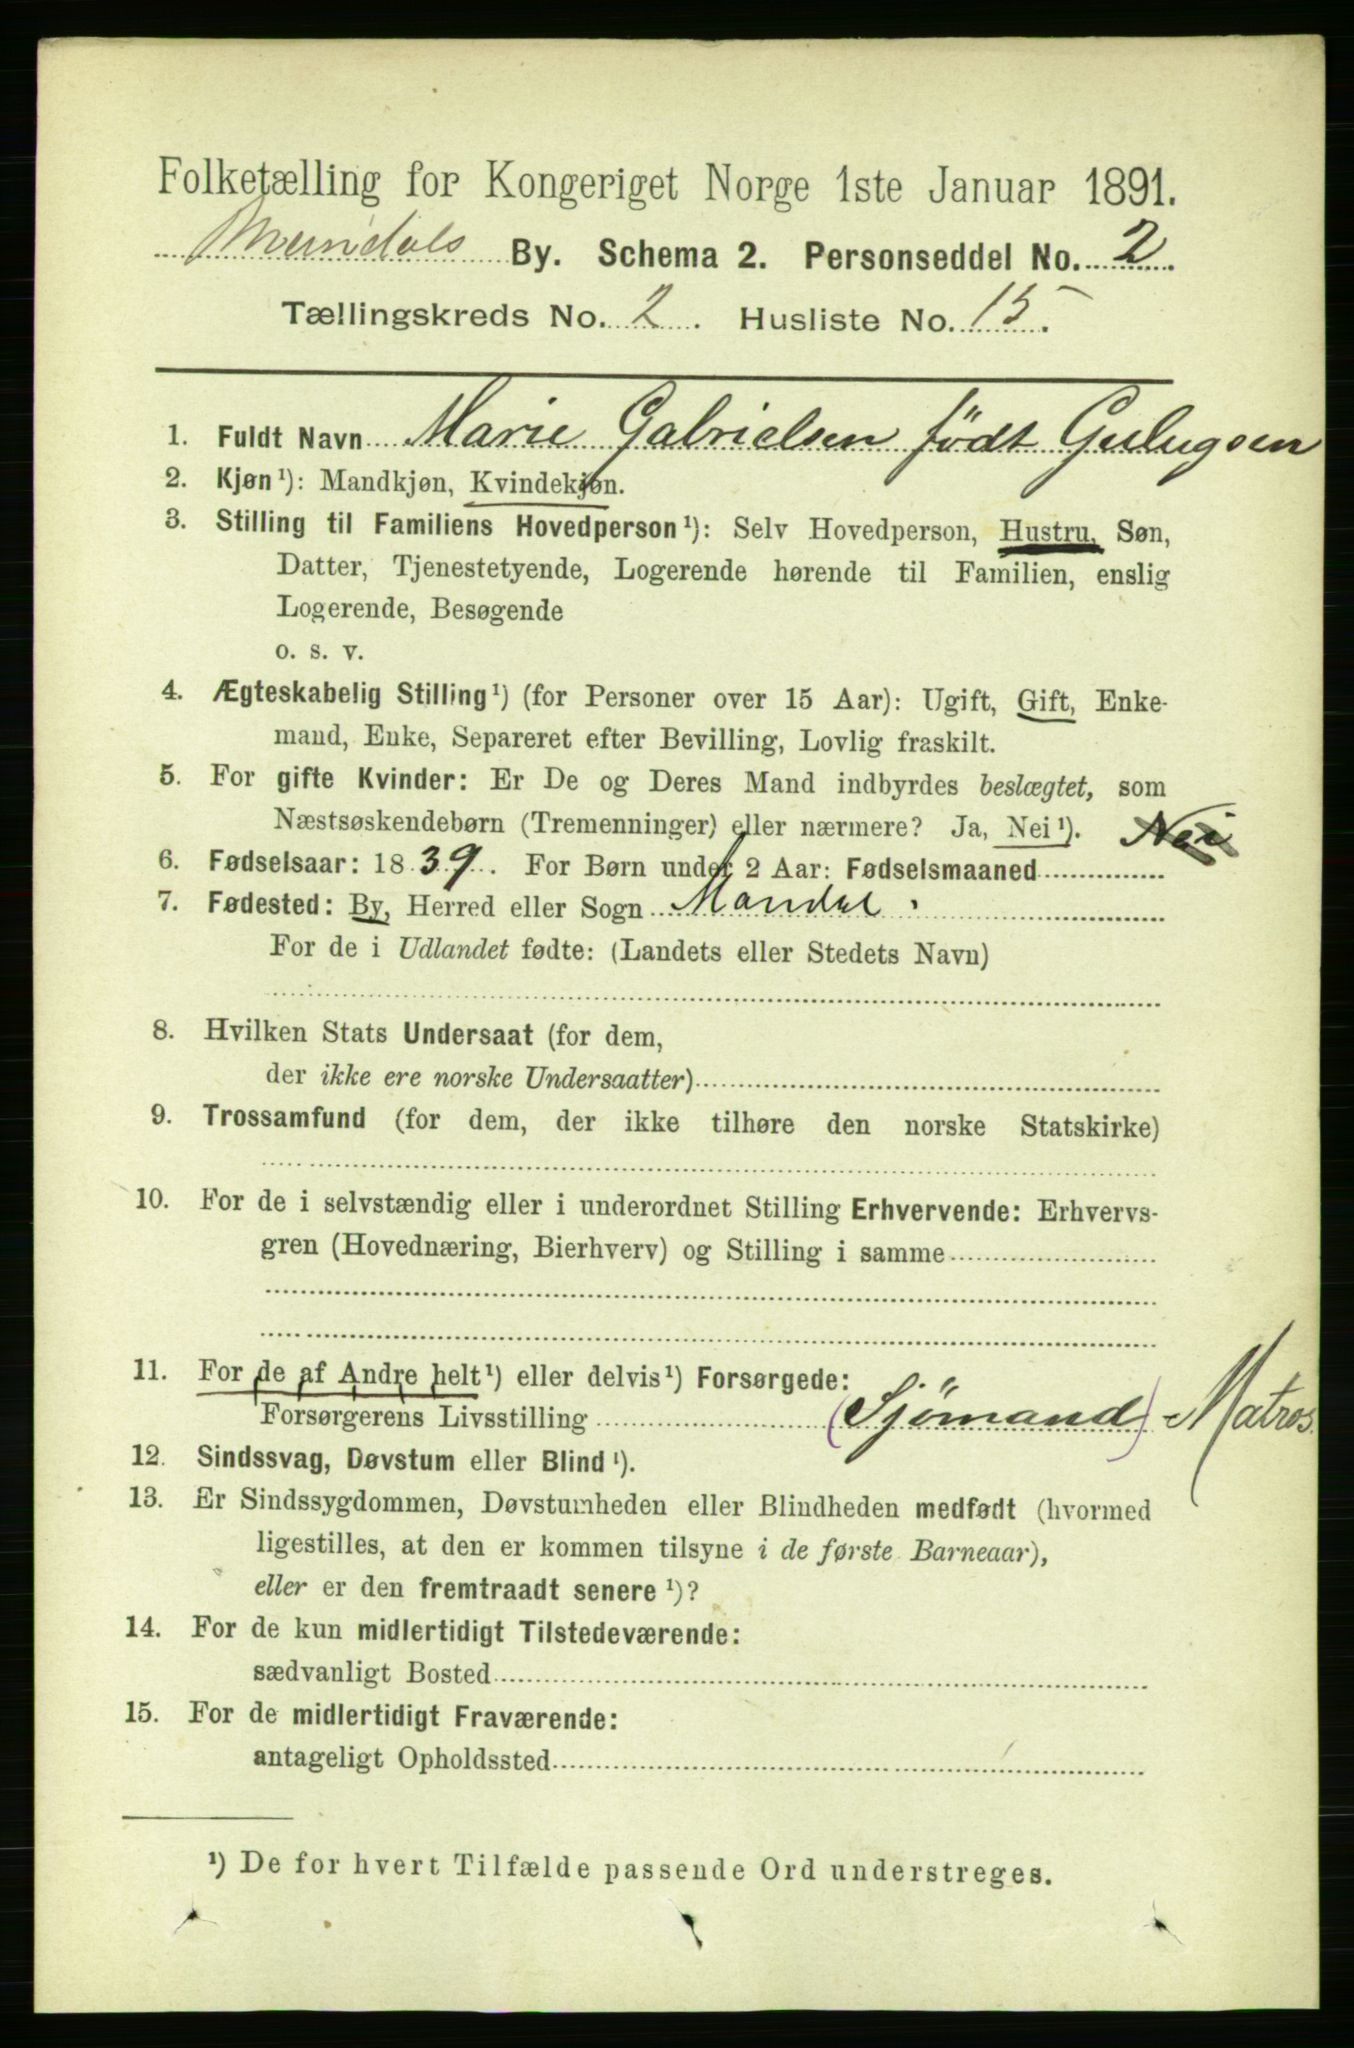 Folketælling for Kongeriget Norge 1ste Januar 1891.
Mandals By. Schema 2. Personseddel No. 2
Tællingskreds No. 2. Husliste No. 15.
1. Fuldt Navn Marie Gabrielsen födt Gulugsen
2. Kjøn¹): Mandkjøn, Kvindekjøn.
3. Stilling til Familiens Hovedperson¹): Selv Hovedperson, Hustru, Søn,
Datter, Tjenestetyende, Logerende hørende til Familien, enslig
Logerende, Besøgende
o. s. v.
4. Ægteskabelig Stilling¹) (for Personer over 15 Aar): Ugift, Gift, Enke-
mand, Enke, Separeret efter Bevilling, Lovlig fraskilt.
5. For gifte Kvinder: Er De og Deres Mand indbyrdes beslægtet, som
Næstsøskendebørn (Tremenninger) eller nærmere? Ja, Nei¹). Nei
6. Fødselsaar: 1839. For Børn under 2 Aar: Fødselsmaaned
7. Fødested: By, Herred eller Sogn Mandal.
For de i Udlandet fødte: (Landets eller Stedets Navn)
8. Hvilken Stats Undersaat (for dem,
der ikke ere norske Undersaatter)
9. Trossamfund (for dem, der ikke tilhøre den norske Statskirke)
10. For de i selvstændig eller i underordnet Stilling Erhvervende: Erhvervs-
gren (Hovednæring, Bierhverv) og Stilling i samme
11. For de af Andre helt¹) eller delvis¹) Forsørgede:
Forsørgerens Livsstilling (Sjömand) Matros.
12. Sindssvag, Døvstum eller Blind¹).
13. Er Sindssygdommen, Døvstumheden eller Blindheden medfødt (hvormed
ligestilles, at den er kommen tilsyne i de første Barneaar),
eller er den fremtraadt senere¹)?
14. For de kun midlertidigt Tilstedeværende:
sædvanligt Bosted
15. For de midlertidigt Fraværende:
antageligt Opholdssted
¹) De for hvert Tilfælde passende Ord understreges.